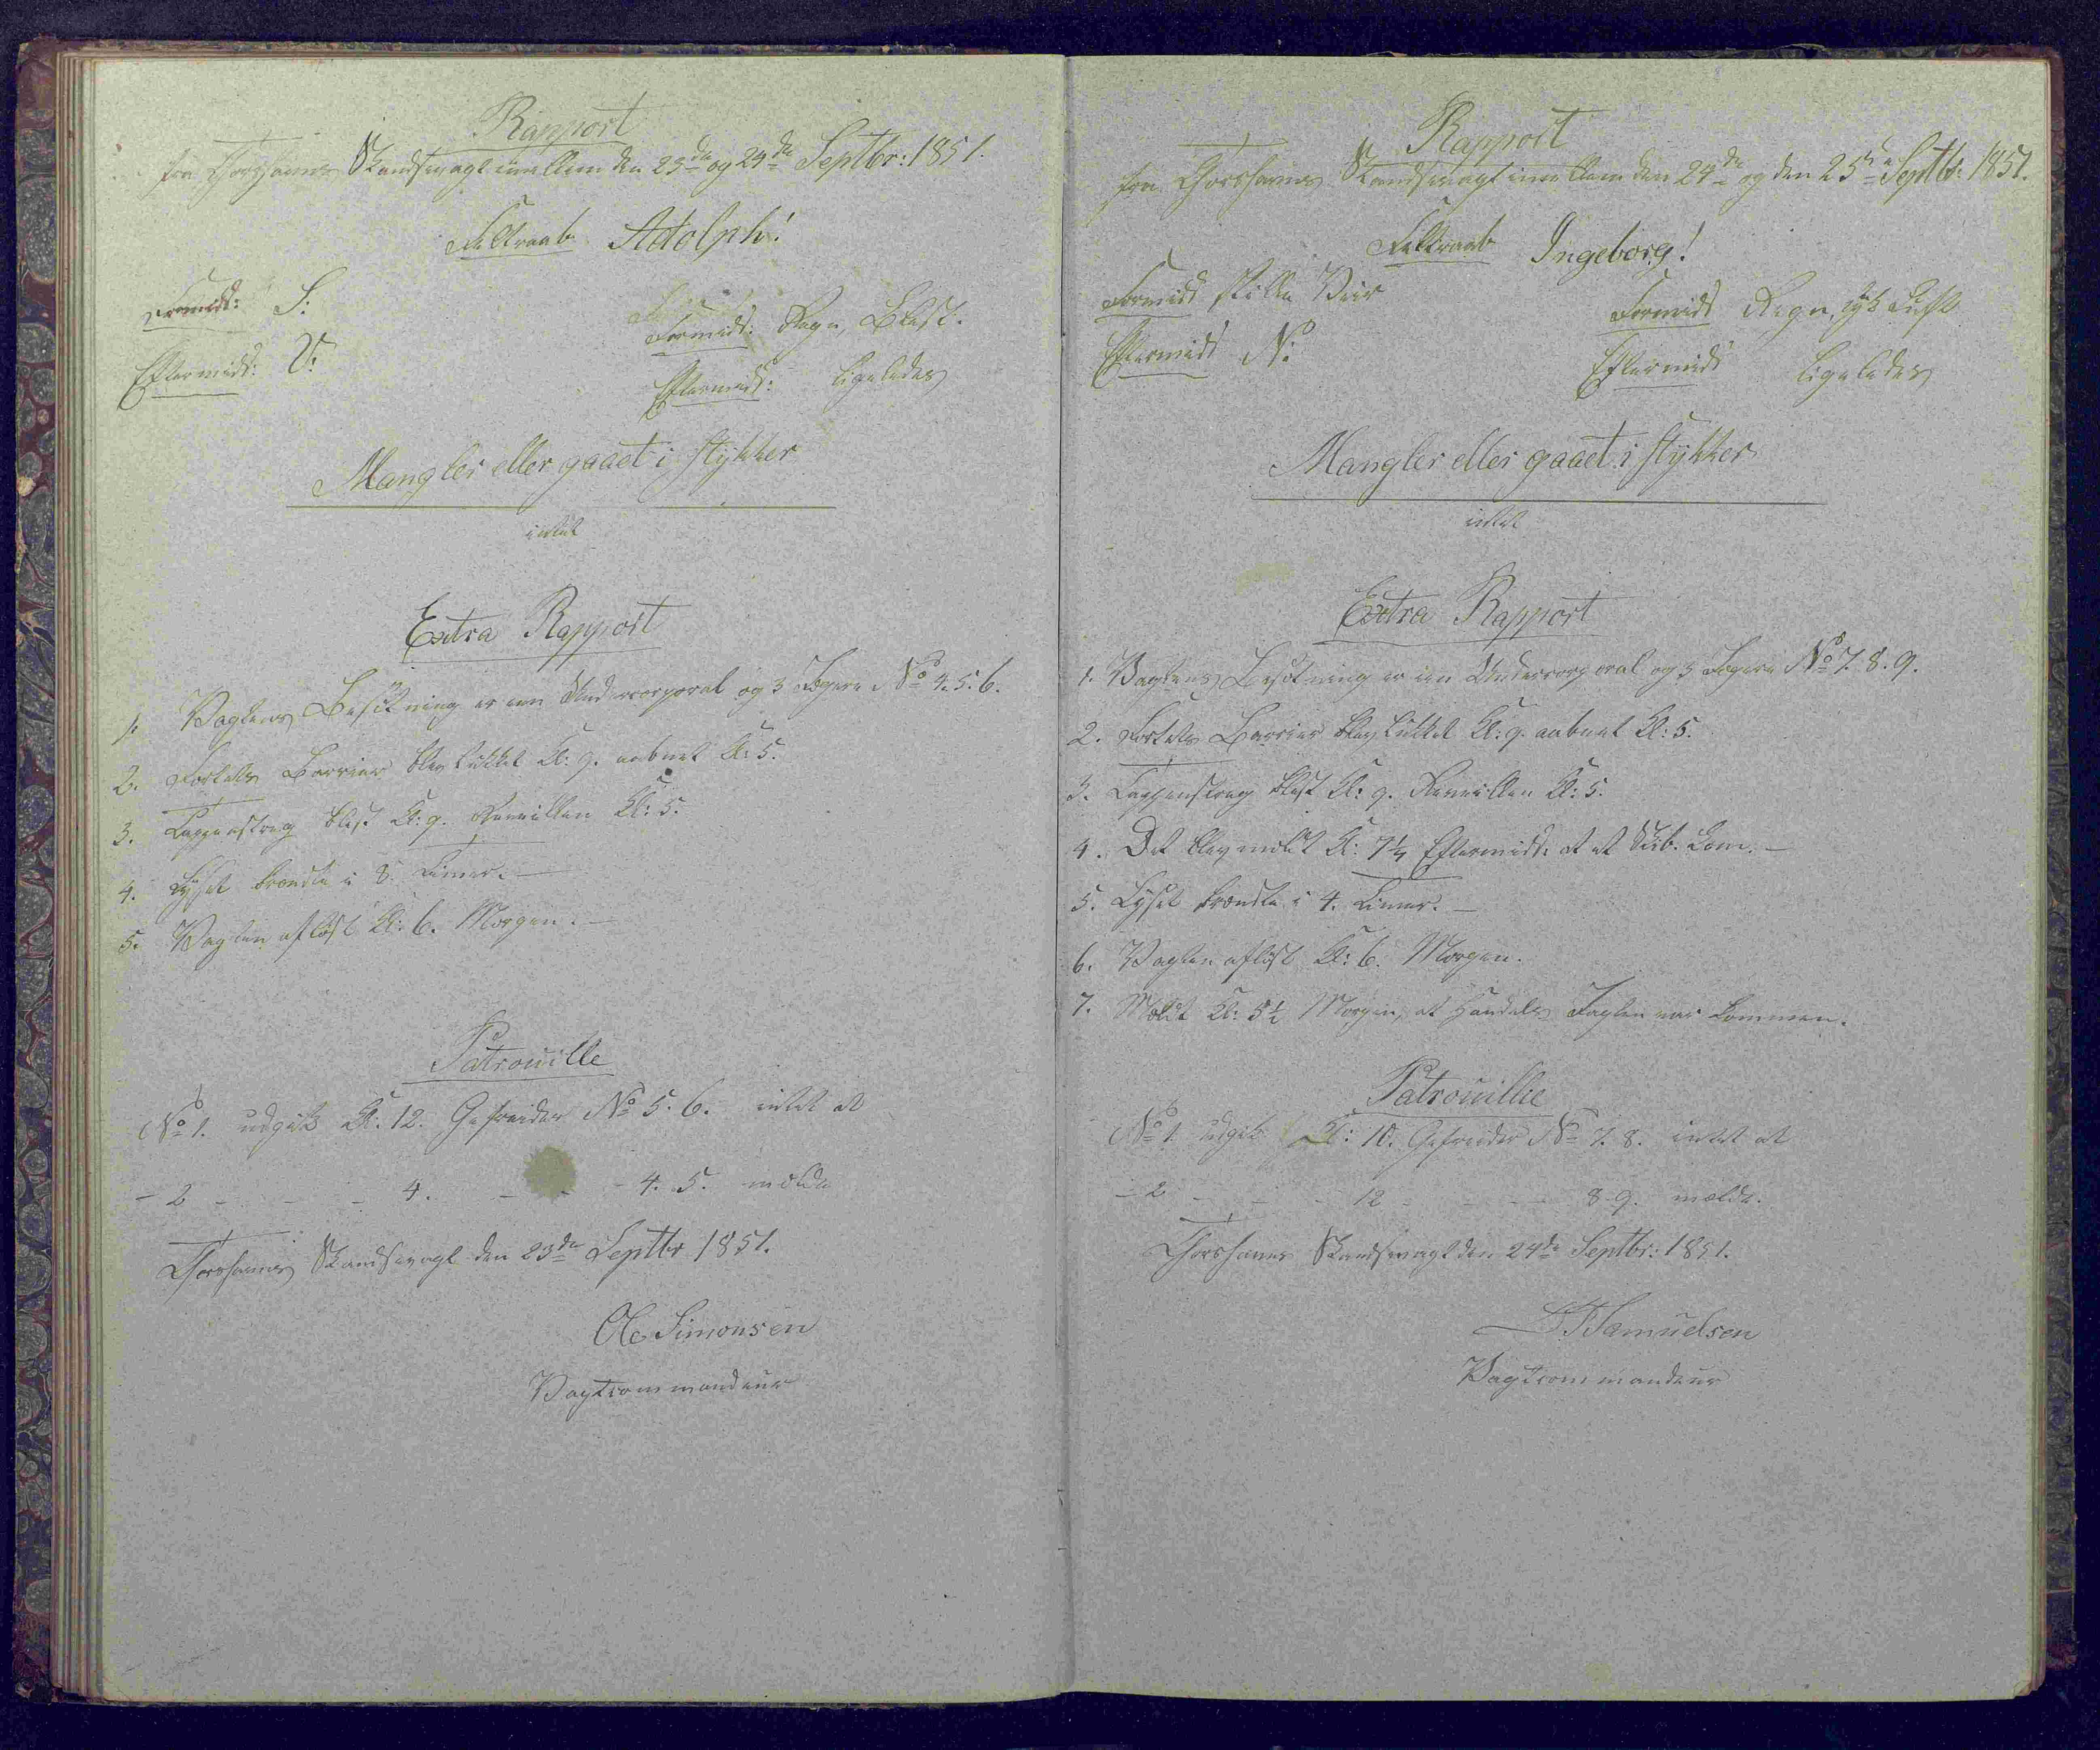 Rapport
fra Thorshavns Skandsevagt imellem den 23de og 24de Septbr: 1851.
Feltraab Adolph!
Formidd: S:
Formidd: Regn, Blæst.
Eftermidd: V:
Eftermidd: ligeledes
Mangler eller gaaet i stykker
intet
Extra Rapport
1. Vagtens Besætning er een Undercorporal og 3 Jægere No 4. 5. 6.
2. Fortets Barriere blev lukket Kl: 9. aabnet Kl: 5.
3. Tappenstreg blæst Kl: 9. Reveillen Kl: 5.
4. Lyset brændte i 8. Timer. —
5. Vagten afløst Kl: 6. Morgen. —
Patrouille
No 1. udgik Kl. 12. Gefreider No 5. 6. intet at
- 2 - - - 4. - - - 4. 5. melde
Thorshavns Skandsevagt den 23de Septbr 1851.
Ole Simonsen
Vagtcommandeur
Rapport
fra Thorshavns Skandsevagt imellem den 24de og den 25de Septbr: 1851.
Feltraab Ingeborg!
Formidd stille Veir
Formidd Regn, tyk Luft
Eftermidd N:
Eftermidd ligeledes
Mangler eller gaaet i stykker
intet
Extra Rapport
1. Vagtens Besætning er een Undercorporal og 3 Jægere No 7. 8. 9.
2. Fortets Barriere blev lukket Kl: 9. aabnet Kl: 5.
3. Tappenstreg blæst Kl: 9. Reveillen Kl: 5.
4. Det blev meldt Kl: 7¼ Eftermidd: at et Skib. kom. —
5. Lyset brændte i 4. Timer. —
6. Vagten afløst Kl: 6. Morgen.
7. Meldt Kl: 5½ Morgen, at Handels Jagten var kommen.
Patrouille
No 1. udgik Kl: 10. Gefreider No 7. 8. intet at
- 2 - - - 12 - - - 8. 9. melde.
Thorshavns Skandsevagt den 24de Septbr: 1851.
Samuelsen
Vagtcommandeur